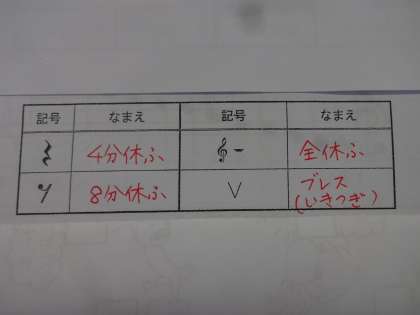 記号 なまえ 記号 なまえ
4分休ふ 全休ふ
8分休ふ V ブレス
(いきつぎ)